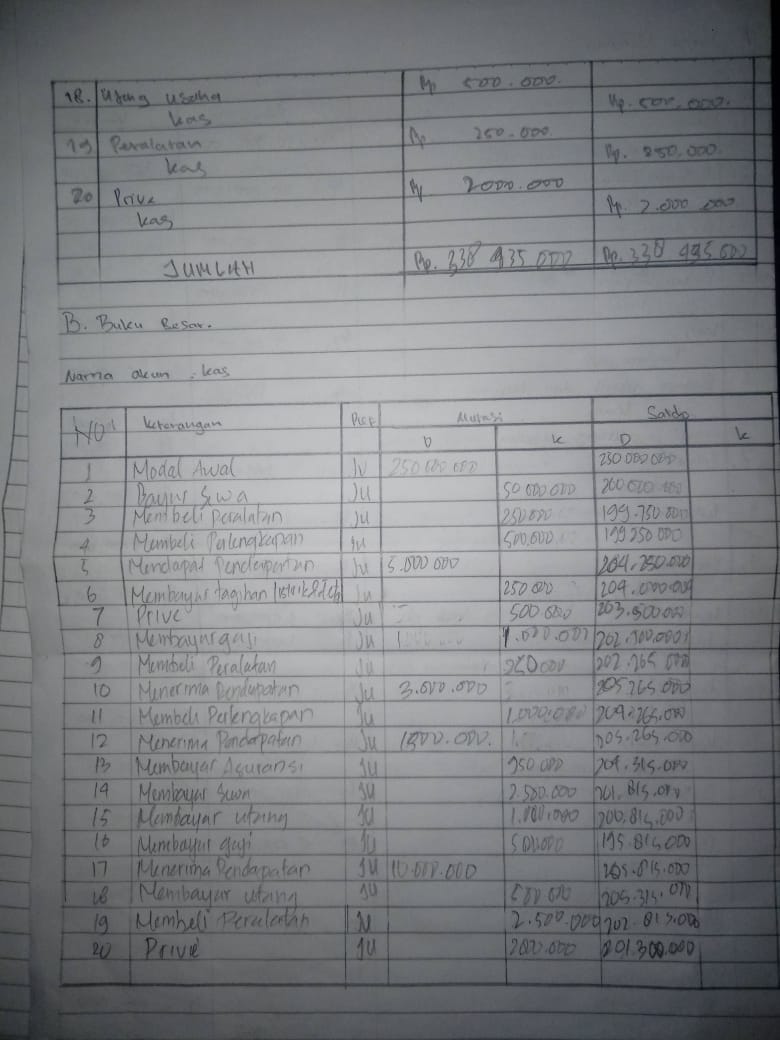 18. Utang usaha Rp 500.000.
kas Rp. 500.000.
19 Peralatan Rp 250.000.
kas Rp. 250.000.
20 Prive Rp 2000.000
kas Rp. 2.000 000
JUMLAH Rp. 338 935 000 Rp. 338 935 000
B. Buku Besar.
Nama akun : kas
NO keterangan Ref Mutasi Saldo
D k D k
1 Modal Awal Ju 250 000 000 250 000 000
2 Bayar Sewa Ju 50 000 000 200 000 000
3 Membeli Peralatan Ju 250 000 199.750 000
4 Membeli Perlengkapan Ju 500.000 199 250 000
5 Mendapat Pendapatan Ju 5.000 000 204.250.000
6 Membayar tagihan Ju 250 000 204.000.000
7 Prive Ju 500 000 203.500.000
8 Membayar gaji Ju 1.000.000
9 Membeli Peralatan Ju 202.265 000
10 Menerima Pendapatan Ju 3.000.000 205 265.000
11 Membeli Perlengkapan Ju 1.000.000 204.265.000
12 Menerima Pendapatan Ju 205.265.000
13 Membayar Asuransi Ju 950 000 204.315.000
14 Membayar Sewa Ju 2.500.000 201.815.000
15 Membayar utang Ju 1.000.000 200.815.000
16 Membayar gaji Ju 195.815.000
17 Menerima Pendapatan Ju 10.000.000 205.815.000
18 Membayar utang Ju 500 000 205.315.000
19 Membeli Peralatan Ju 2.500.000 202.815.000
20 Prive Ju 2000.000 201.300.000